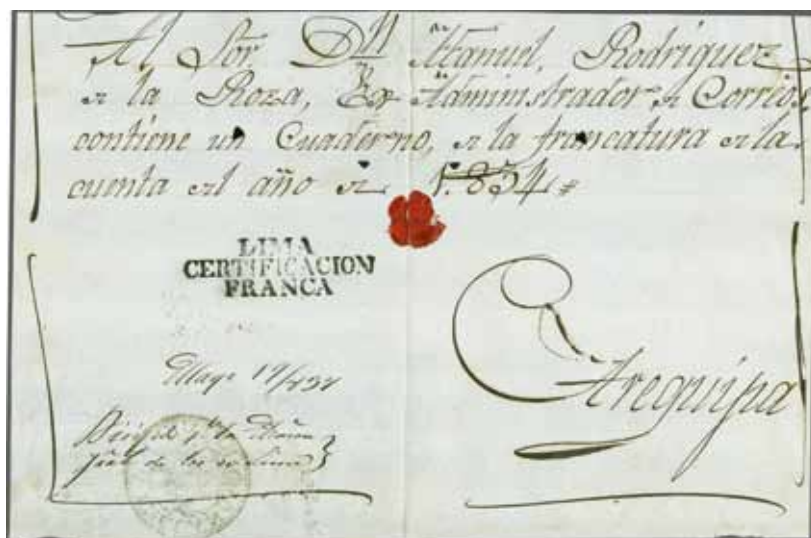 Al Sor. Dn Manuel, Rodriguez
de la Roza, Ex Administrador de Correos
contiene un Cuaderno, de la francatura de la
cuenta del año de 1.834
LIMA
CERTIFICACION
FRANCA
Mayo
Arequipa